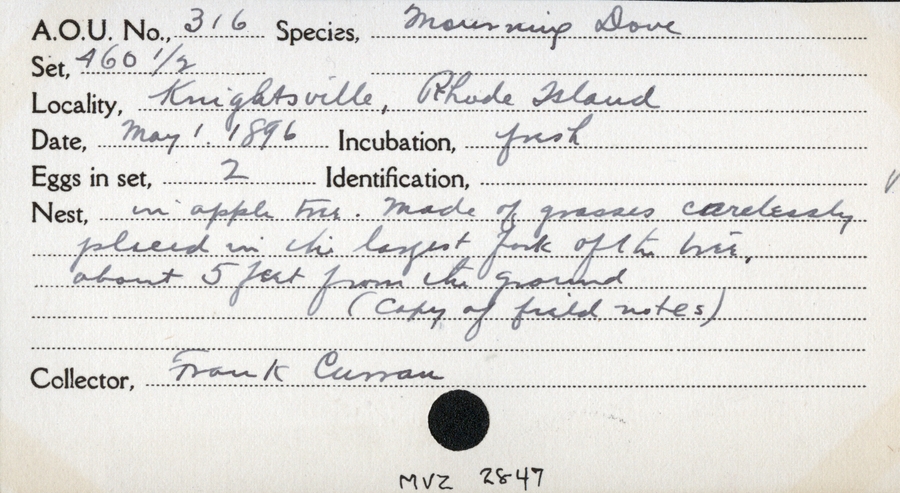 A.O.U. No., 316 Species, Mourning Dove
Set, 460 1/2
Locality, Knightsville, Rhode Island
Date, May 1. 1896 Incubation, fresh
Eggs in set, 2 Identification,
Nest, in apple tree. Made of grasses carelessly
placed in the largest fork of the tree,
about 5 feet from the ground
(Copy of field notes)
Collector, Frank Curran
MVZ 2847